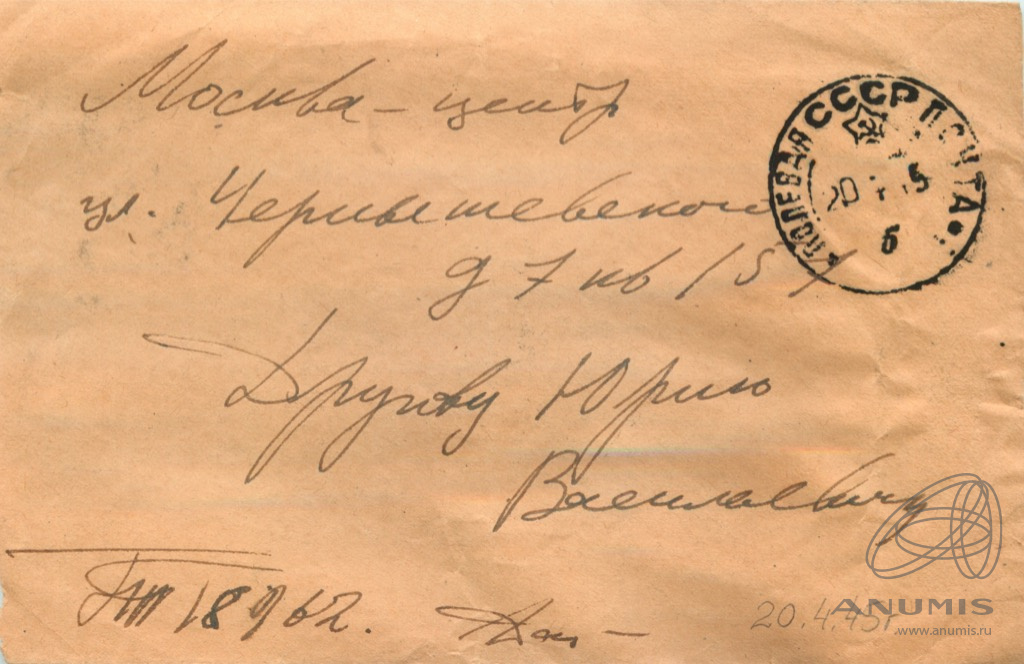 Москва – центр
ул. Чернышевского
д 7 кв 151
Другову Юрию
Васильевичу
ПП 18962.
ПОЛЕВАЯ ПОЧТА
СССР
20 4 45
б
20.4.45г
ANUMIS
www.anumis.ru